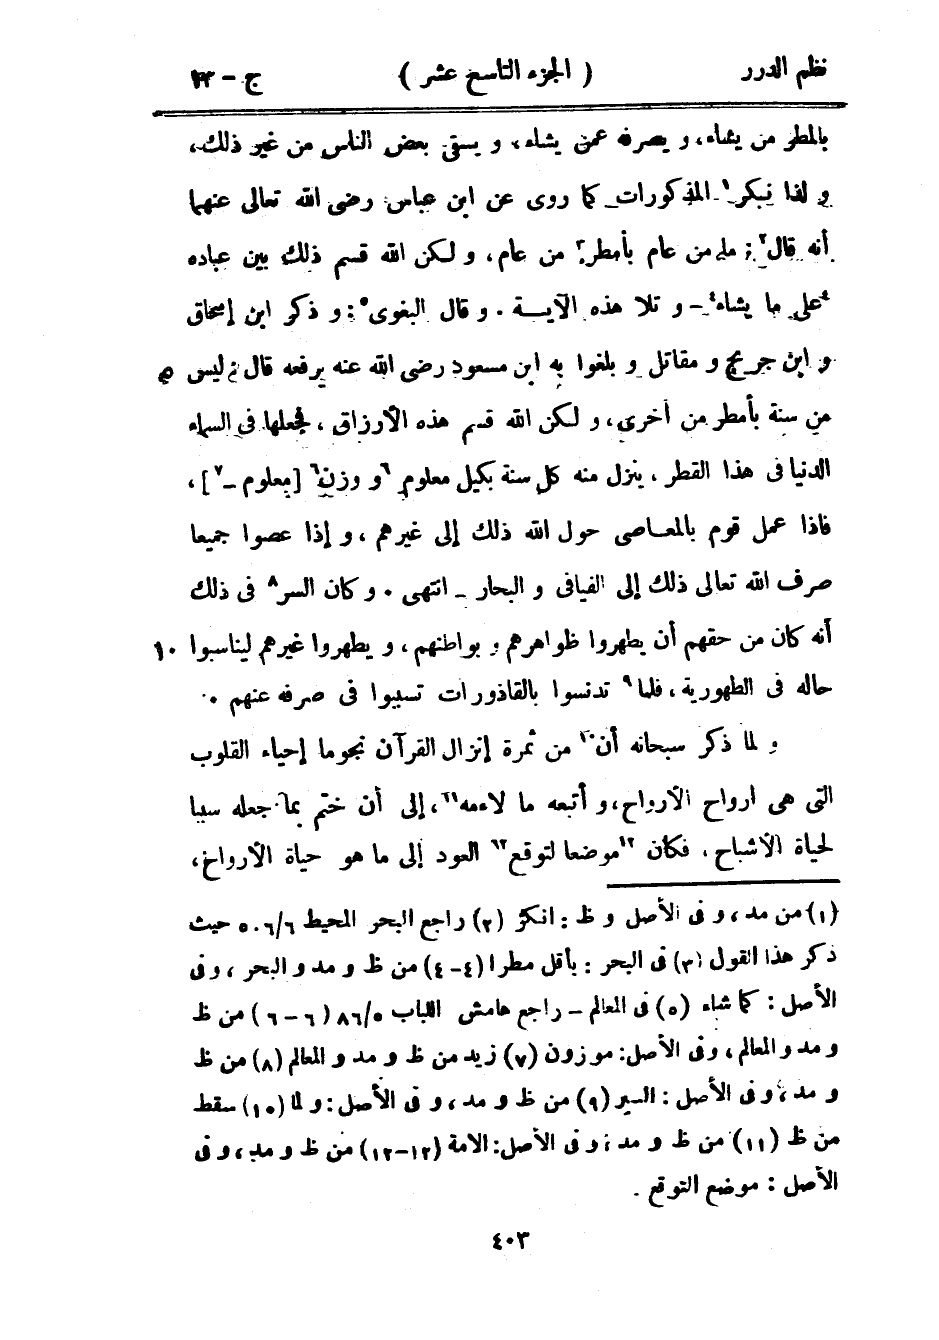 نظم الدرر ( الجزء التاسع عشر ) ج – ١٣
بالمطر من يشاء، و يصرفه عمن يشاء، و يسقى بعض الناس من غير ذلك،
و لذا نبكر١ المذكورات كما روى عن ابن عباس رضى الله تعالى عنهما
أنه قال٢: ما من عام بأمطر٣ من عام، و لكن الله قسم ذلك بين عباده
٤على ما يشاء٤ – و تلا هذه الآية . و قال البغوى٥: و ذكر ابن إسحاق
و ابن جريج و مقاتل و بلغوا به ابن مسعود رضى الله عنه يرفعه قال: ليس ٥
من سنة بأمطر من أخرى، و لكن الله قسم هذه الأرزاق، فجعلها فى السماء
الدنيا فى هذا القطر، ينزل منه كل سنة بكيل معلوم ٦و وزن٦ [معلوم –٧]،
فاذا عمل قوم بالمعاصى حول الله ذلك إلى غيرهم، و إذا عصوا جميعا
صرف الله تعالى ذلك إلى الفيافى و البحار – انتهى . و كان السر٨ فى ذلك
أنه كان من حقهم أن يطهروا ظواهرهم و بواطنهم، و يطهروا غيرهم ليناسبوا ١٠
حاله فى الطهورية، فلما٩ تدنسوا بالقاذورات تسببوا فى صرفه عنهم .
و لما ذكر سبحانه أن١٠ من ثمرة إنزال القرآن نجوما إحياء القلوب
التى هى أرواح الأرواح، و أتبعه ما لاءمه١١، إلى أن ختم بما جعله سببا
لحياة الأشباح، فكان ١٢موضعا لتوقع١٢ العود إلى ما هو حياة الأرواح،
(١) من مد، و فى الأصل و ظ : انكر (٢) راجع البحر المحيط ٥٠٦/٦ حيث
ذكر هذا القول (٣) فى البحر : بأقل مطرا (٤–٤) من ظ و مد و البحر، و فى
الأصل : كما شاء (٥) فى المعالم – راجع هامش اللباب ٨٦/٥ (٦–٦) من ظ
و مد و المعالم، و فى الأصل: موزون (٧) زيد من ظ و مد و المعالم (٨) من ظ
و مد، و فى الأصل : السير (٩) من ظ و مد، و فى الأصل : و لما (١٠) سقط
من ظ (١١) من ظ و مد، و فى الأصل: الامة (١٢–١٢) من ظ و مد، و فى
الأصل : موضع التوقع .
٤٠٣